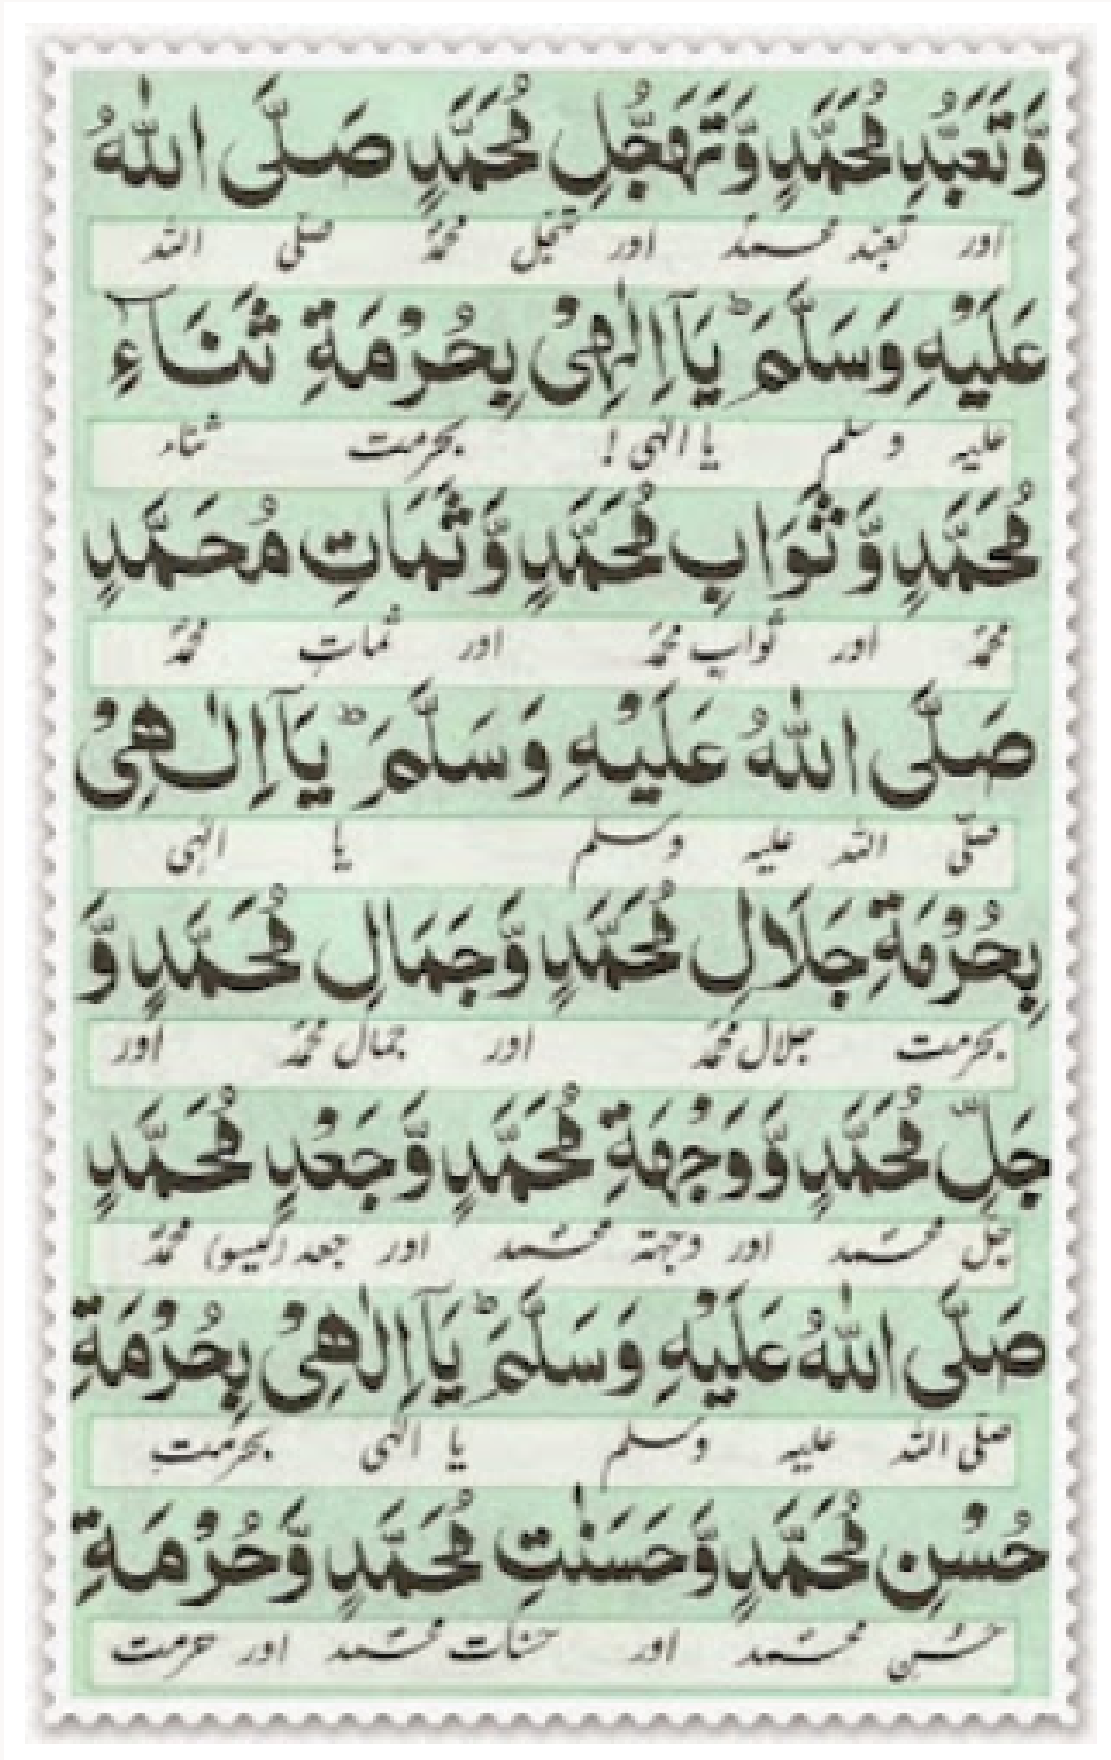 وَّتَعَبُّدِ مُحَمَّدٍ وَّتَهَجُّلِ مُحَمَّدٍ صَلَّى اللهُ
اور تعبّد محمد اور تہجّل محمدؐ صلّی اللہ
عَلَيْهِ وَسَلَّمَ ؕ يَآ اِلٰهِيْ بِحُرْمَةِ ثَنَآءِ
علیہ وسلم یا الٰہی ! بحرمت ثناء
مُحَمَّدٍ وَّثَوَابِ مُحَمَّدٍ وَّثَمَاتِ مُحَمَّدٍ
محمدؐ اور ثواب محمدؐ اور ثمات محمدؐ
صَلَّى اللهُ عَلَيْهِ وَسَلَّمَ ؕ يَآ اِلٰهِيْ
صلّی اللہ علیہ وسلم یا الٰہی
بِحُرْمَةِ جَلَالِ مُحَمَّدٍ وَّجَمَالِ مُحَمَّدٍ وَّ
بحرمت جلال محمدؐ اور جمال محمدؐ اور
جَلِّ مُحَمَّدٍ وَّوَجْهَةِ مُحَمَّدٍ وَّجَعْدِ مُحَمَّدٍ
جلّ محمد اور وجہۃ محمد اور جعد (گیسو) محمدؐ
صَلَّى اللهُ عَلَيْهِ وَسَلَّمَ ؕ يَآ اِلٰهِيْ بِحُرْمَةِ
صلّی اللہ علیہ وسلم یا الٰہی بحرمت
حُسْنِ مُحَمَّدٍ وَّحَسَنٰتِ مُحَمَّدٍ وَّحُرْمَةِ
حُسن محمد اور حسنات محمد اور حرمت